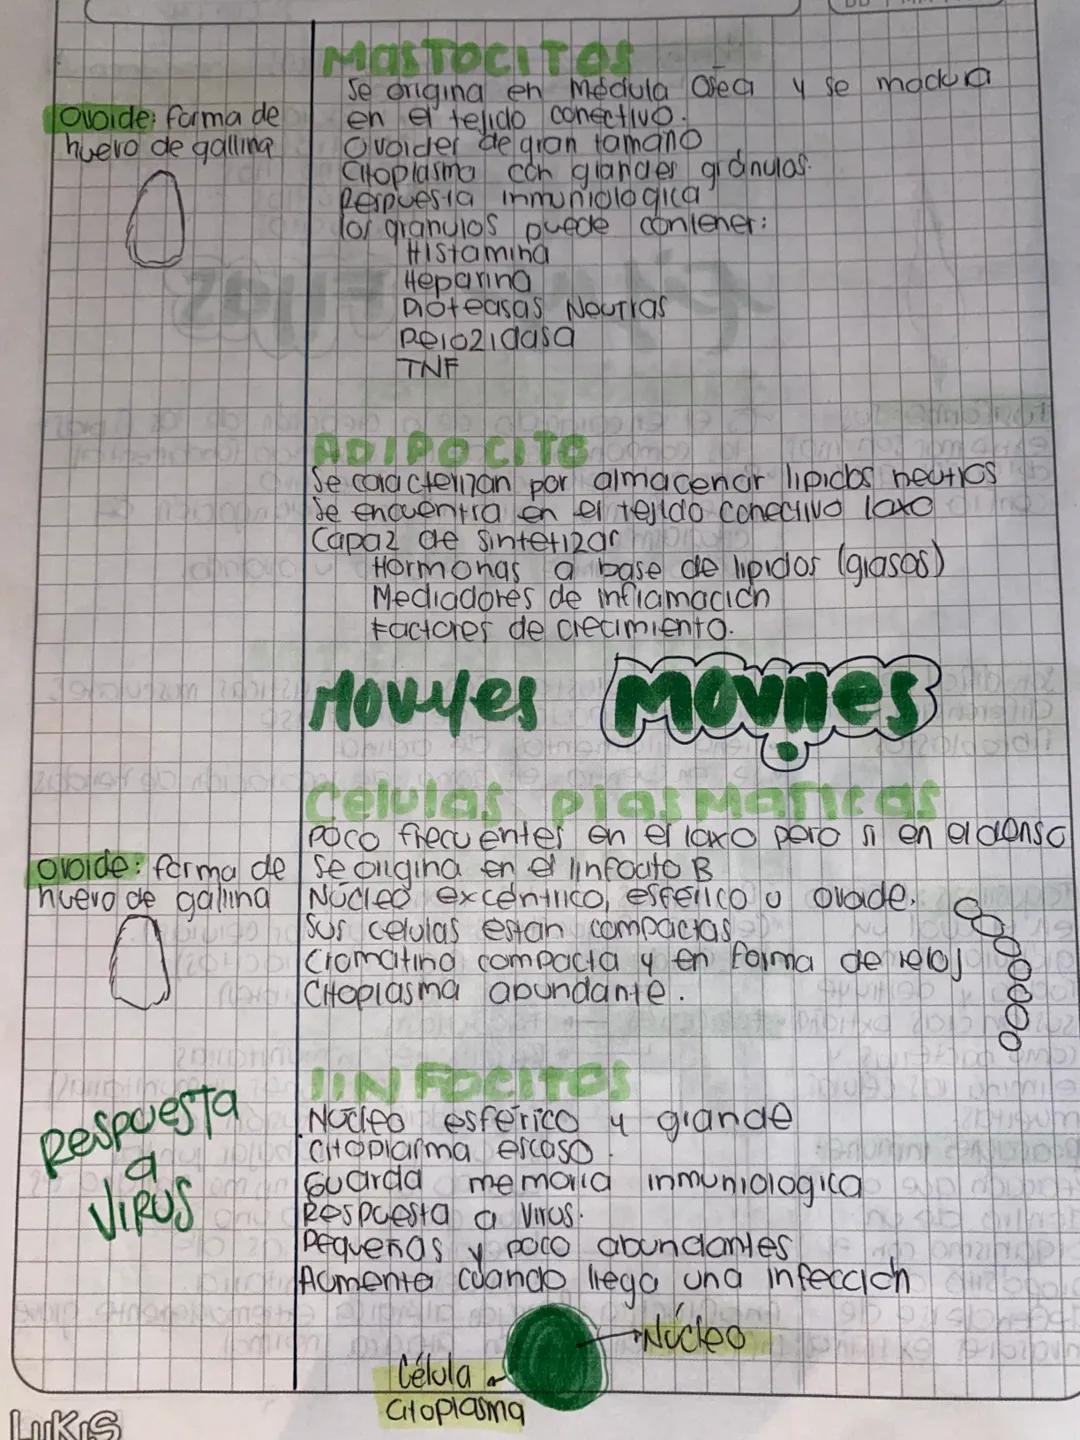 MASTOCITOS
Se origina en médula Osea y se madura
en el tejido conectivo.
Ovoides de gran tamaño
Citoplasma con grandes gránulos.
Respuesta inmuniologica
los granulos puede contener:
Histamina
Heparina
Proteasas Neutras
Perozidasa
TNF
Ovoide: forma de
huevo de gallina
ADIPOCITO
Se caracterizan por almacenar lipidos neutros
Se encuentra en el tejido conectivo laxo
Capaz de sintetizar
Hormonas a base de lipidos (grasas)
Mediadores de inflamación
Factores de crecimiento.
Moviles Moviles
Celulas plasmaticas
Poco frecuentes en el laxo pero si en el denso
Se origina en el linfocito B
Núcleo excéntrico, esférico u ovoide.
Sus celulas estan compactas
Cromatina compacta y en forma de reloj
Citoplasma abundante.
Ovoide: forma de
huevo de gallina
LINFOCITOS
Núcleo esférico y grande
Citoplasma escaso.
Guarda memoria inmuniologica
Respuesta a virus.
Pequeñas y poco abundantes
Aumenta cuando llega una infección
Respuesta
a
VIRUS
Núcleo
Célula
citoplasma
LUKIS